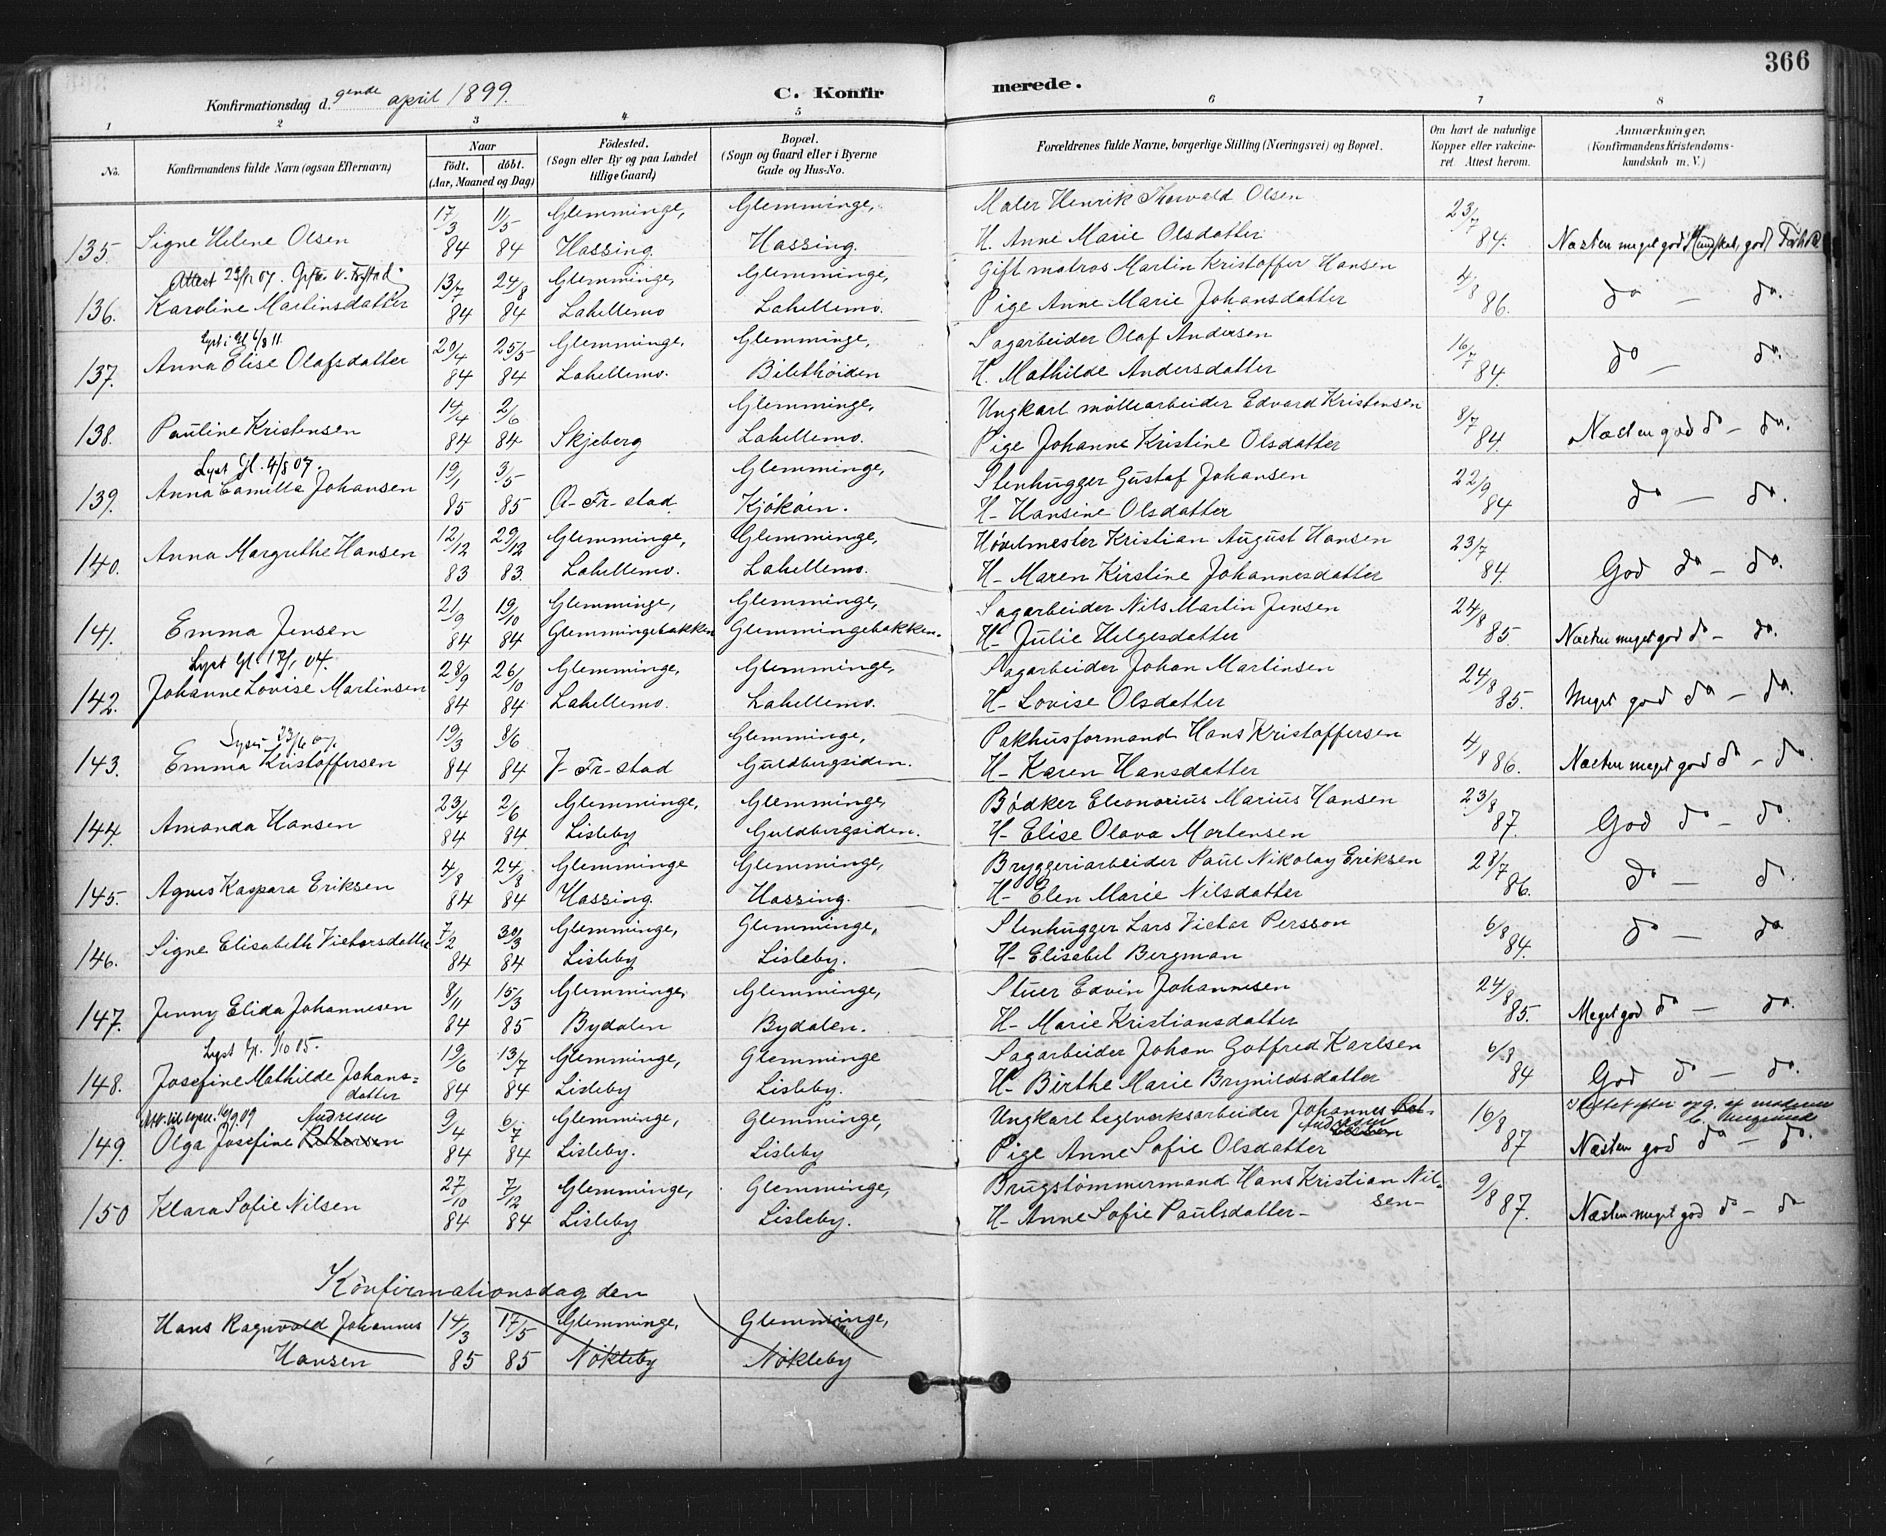 366
Konfirmationsdag d. 9ende april 1899. C. Konfirmerede.
1 2 3 4 5 6 7 8
No. Konfirmandens fulde Navn (ogsaa Efternavn) Naar födt. döbt. (Aar, Maaned og Dag) Födested. (Sogn eller By og paa Landet tillige Gaard) Bopæl. (Sogn og Gaard eller i Byerne Gade og Hus-No. Forældrenes fulde Navne, borgerlige Stilling (Næringsvei) og Bopæl. Om havt de naturlige Kopper eller vakcineret. Attest herom. Anmærkninger. (Konfirmandens Kristendomskundskab m. V.)
17/3 11/5 Glemminge, Glemminge, Maler Henrik Thorvald Olsen 23/7
135. Signe Helene Olsen 84 84 Hassing. Hassing. H. Anne Marie Olsdatter 84. Næsten meget god Kundskab, god Forhold
Attest 23/1 07. 13/7 24/8 Glemminge, Glemminge, Gift matros Martin Kristoffer Hansen 4/8
136. Karoline Martinsdatter 84 84 Lahellemo Lahellemo. Pige Anne Marie Johansdatter 86. do — do.
Lyst i Gl 6/8 11. 20/4 25/5 Glemminge, Glemminge, Sagarbeider Olaf Andersen 16/7
137. Anna Elise Olafsdatter 84 84 Lahellemo. Bilethöiden H. Mathilde Andersdatter 84. do — do.
14/4 2/6 Glemminge, Ungkarl möllearbeider Edvard Kristensen 8/7
138. Pauline Kristensen 84 84 Skjeberg Lahellemo. Pige Johanne Kristine Olsdatter 84 Næsten god do — do.
Lyst Gl. 4/8 07. 19/1 3/5 Glemminge, Stenhugger Gustaf Johansen 22/9
139. Anna Camilla Johansen 85 85 Ö-Fr-stad Kjököin. H- Hansine Olsdatter 84 do — do.
12/12 29/12 Glemminge, Glemminge, Hövelmester Kristian August Hansen 23/7
140. Anna Margrethe Hansen 83 83. Lahellemo. Lahellemo. H- Maren Kirstine Johannesdatter 84. God do — do.
21/9 19/10 Glemminge, Glemminge, Sagarbeider Nils Martin Jensen 24/8
141. Emma Jensen 84 84 Glemmingebakken Glemmingebakken. H- Julie Helgesdatter 85. Næsten meget god do — do.
Lyst Gl. 17/1 04. 28/9 26/10 Glemminge, Glemminge, Sagarbeider Johan Martinsen 24/8
142. Johanne Lovise Martinsen 84 84 Lahellemo. Lahellemo. H- Lovise Olsdatter 85. Meget god do — do.
Lyst 23/6 07. 19/3 8/6 Glemminge, Pakhusformand Hans Kristoffersen 4/8
143. Emma Kristoffersen 84 84 V-Fr-stad Guldbergsiden. H- Karen Hansdatter 86. Næsten meget god do — do.
23/4 2/6 Glemminge, Glemminge, Bödker Eleonorius Marius Hansen 23/8
144. Amanda Hansen 84 84. Lisleby Guldbergsiden. H- Elise Olava Mortensen 87. God do — do.
4/8 24/8 Glemminge Glemminge, Bryggeriarbeider Paul Nikolay Eriksen 28/7
145. Agnes Kaspara Eriksen 84 84 Hassing Hassing. H- Elen Marie Nilsdatter 86. do — do.
7/2 30/3 Glemminge, Glemminge, Stenhugger Lars Victor Persson 6/8
146. Signe Elisabeth Victorsdatter 84 84 Lisleby Lisleby. H- Elisabet Bergman 84. do — do
8/11 15/3 Glemminge, Glemminge, Stuer Edvin Johannesen 24/8
147. Jenny Elida Johannesen 84 85 Bydalen Bydalen. H- Marie Kristiansdatter 85. Meget god do — do.
Lyst Gl. 1/10 05. 19/6 13/7 Glemminge, Glemminge Sagarbeider Johan Gotfred Karlsen 6/8
148. Josefine Mathilde Johansdatter 84 84 Lisleby Lisleby. H- Birthe Marie Brynildsdatter 84 God do — do.
Andresen 9/4 6/7 Glemminge, Glemminge, Ungkarl teglverksarbeider Johannes Andresen 16/8
149. Olga Josefine Pettersen 84 84 Lisleby. Lisleby Pige Anne Sofie Olsdatter 87 Næsten god do — do.
27/10 7/12 Glemminge, Glemminge, Brugstömmermand Hans Kristian Nilsen- 9/8
150 Klara Sofie Nilsen 84 84 Lisleby Lisleby. H- Anne Sofie Paulsdatter- 87. Næsten meget god do — do
Konfirmationsdag den
Hans Ragnvald Johannes 14/3 17/5 Glemminge, Glemminge,
Hansen 85 85 Nökleby Nökleby